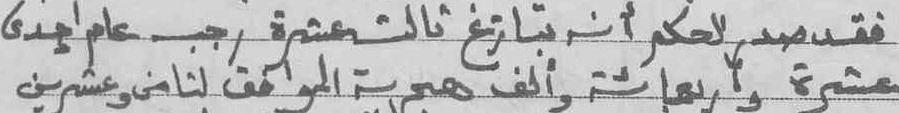 فقد صدر الحكم أنه بتاريخ ثالث عشرة رجب عام إحدى
عشرة وأربعمائة وألف هجرية الموافق لثامن وعشرين